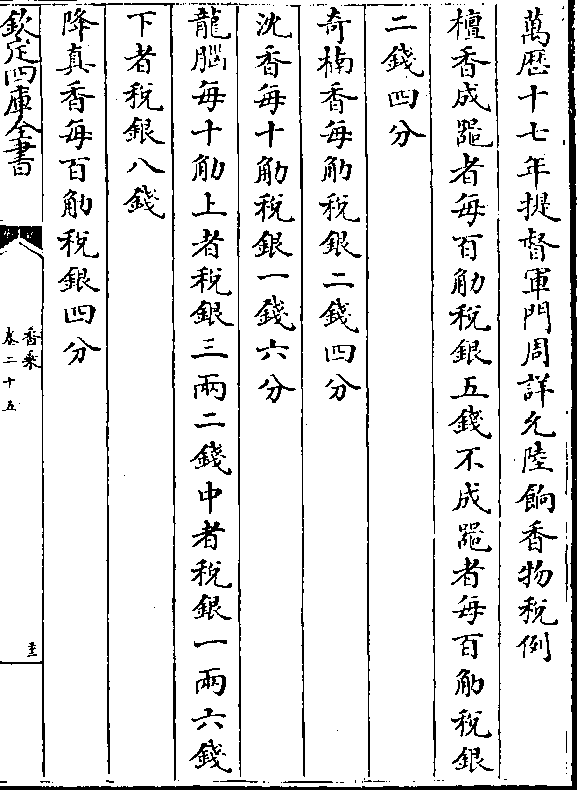 萬歴十七年提督軍門周詳允陸餉香物稅例
檀香成器者每百觔稅銀五錢不成器者每百觔稅銀
二錢四分
奇楠香每觔稅銀二錢四分
沈香每十觔稅銀一錢六分
龍腦每十觔上者稅銀三兩二錢中者稅銀一兩六錢
下者稅銀八錢
降真香每百觔稅銀四分
欽定四庫全書
香乘
卷二十五